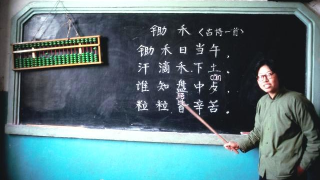 锄 禾〈古诗一首〉
锄禾日当午,
汗滴禾下土.
can
谁知盘中歺.
粒粒皆辛苦。